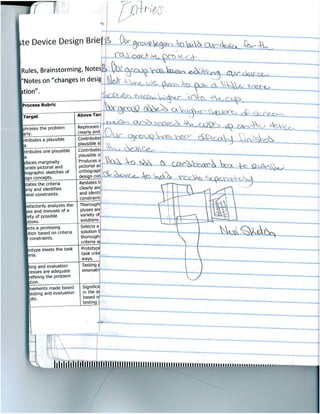 Entries
ste Device Design Brief
Rules, Brainstorming, Notes
"Notes on "changes in desig
ation".
Process Rubric
Target
Above Tar
phrases the problem
Rephrases t
clearly and
ributes a plausible
Contributes
plausible id
tributes one plausible
Contributes
plausible
duces marginally
Produces
urate pictorial and
pictorial an
ographic sketches of
orthograph
ign concepts.
design con
tates the criteria
Restates t
rly and identifies
clearly and
eral constraints.
and identi
constraint
sfactorily analyzes the
Thorough
ses and minuses of a
pluses an
ety of possible
variety of
tions.
solutions.
cts a promising
Selects a
tion based on criteria
solution b
constraints.
thorough
criteria a
totype meets the task
Prototype
eria.
task crite
ways.
ting and evaluation
Testing a
esses are adequate
innovati
refining the problem
tion.
nements made based
Significa
esting and evaluation
in the de
lts.
based o
testing r
Our group began to build our device for the
radioactive project
Our group has been editing our device.
Next time we plan to put a little more
screen mesh higher into the cup.
Our group added a higher square of screen
mesh and moved the cups up on the device.
Our group has now officially finished
the device.
Had to add a cardboard box to outside
of device to hold rocks seperately
New Sketch